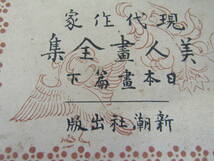 現代作家
美人畫全集
日本畫篇下
新潮社出版